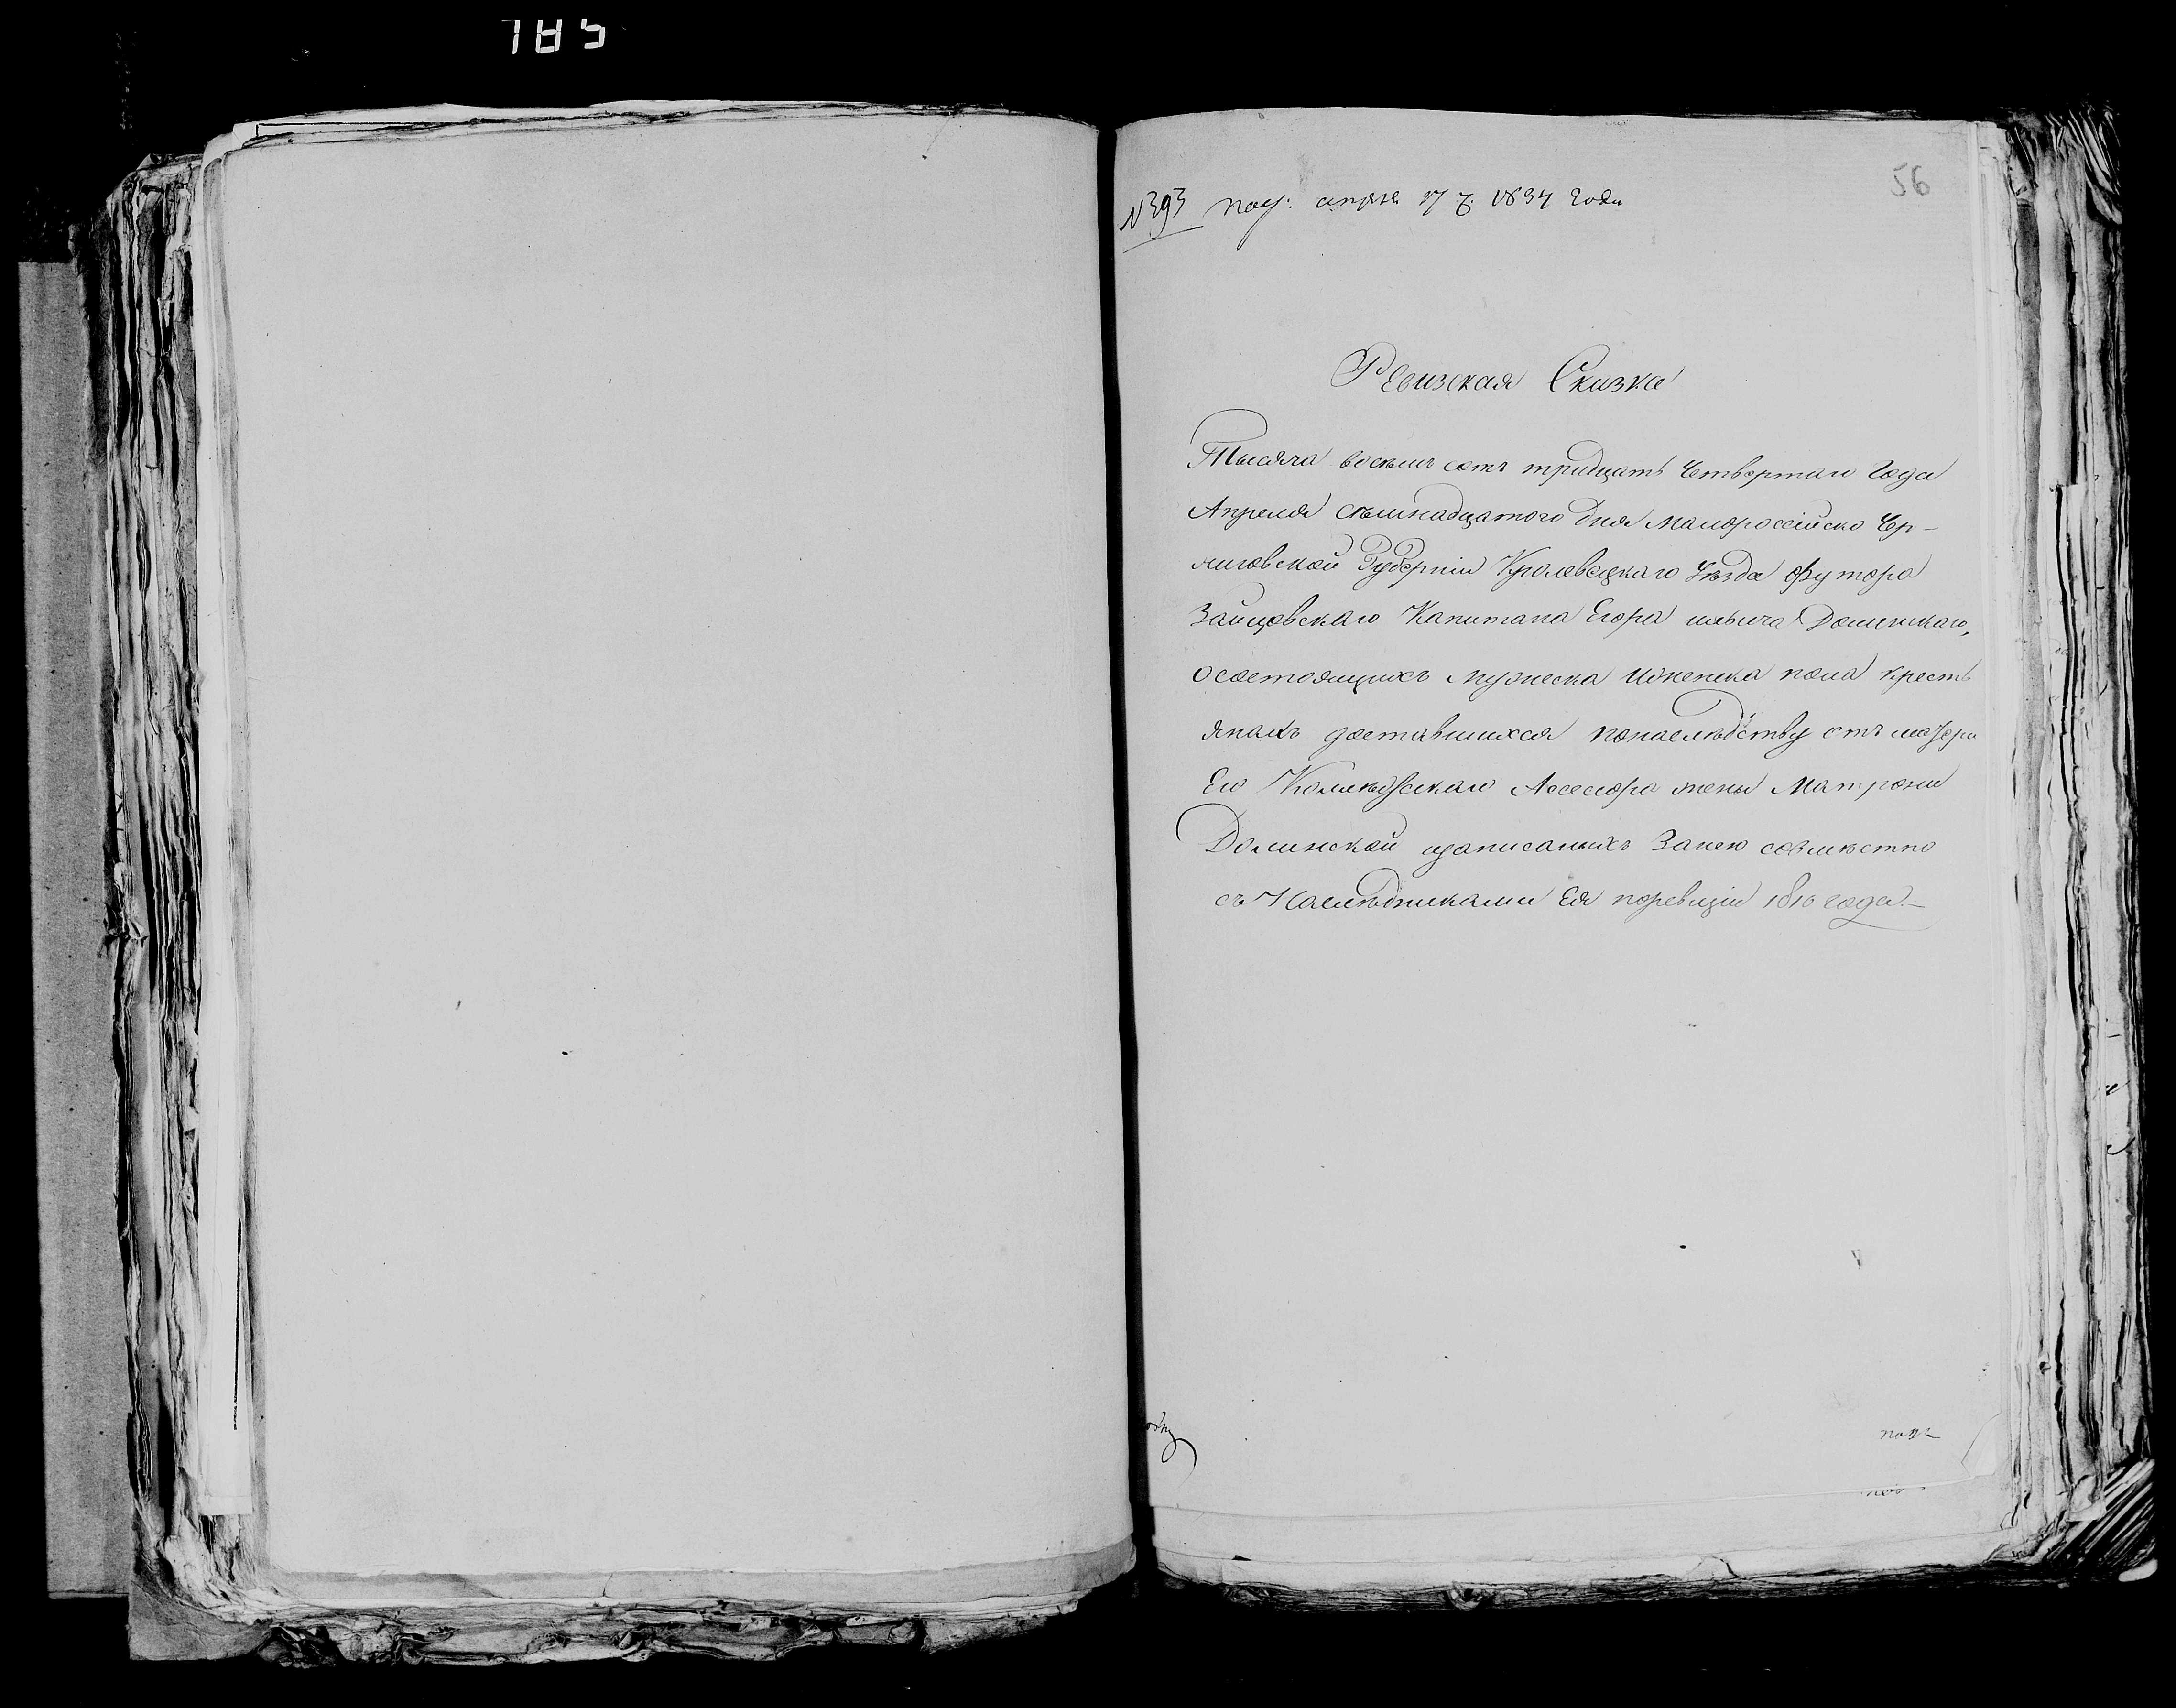 785
56
№ 393 пол: апреля 17 д. 1834 года
Ревизская Сказка
Тысяча восемь сотъ тридцать четвертаго года
Апреля семнадцатого дня Малороссійско Чер-
ниговской Губерніи Кролевецкаго Уезда футора
Зайцовскаго Капитана Егора Долинскаго,
осостоящихъ мужеска иженска пола кресть
янахъ доставшихся понаследству отъ матери
Его Колежскаго Асессора жены Матрони
Долинской написаныхъ Занею совместно
съ Наследниками Ея поревизіи 1816 года.-